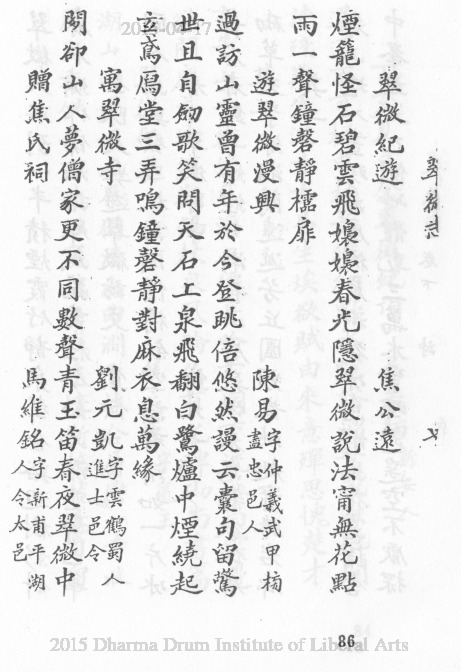 翠微志
翠微紀遊 焦公遠
煙籠怪石碧雲飛嬝嬝春光隱翠微說法甯無花點
雨一聲鐘磬靜檽扉
遊翠微漫興 陳易字仲義武甲橫盡忠邑人
過訪山靈曾有年於今登眺倍悠然謾云囊句留驚
世且自劒歌笑問天石上泉飛翻白鷺爐中煙繞起
玄鳶鳫堂三弄鳴鐘磬靜對麻衣息萬緣
寓翠微寺 劉元凱字雲鶴蜀人進士邑令
閙卻山人夢僧家更不同數聲青玉笛春夜翠微中
贈焦氏祠 馬維銘字新甫平湖人令太邑
86
2015 Dharma Drum Institute of Liberal Arts